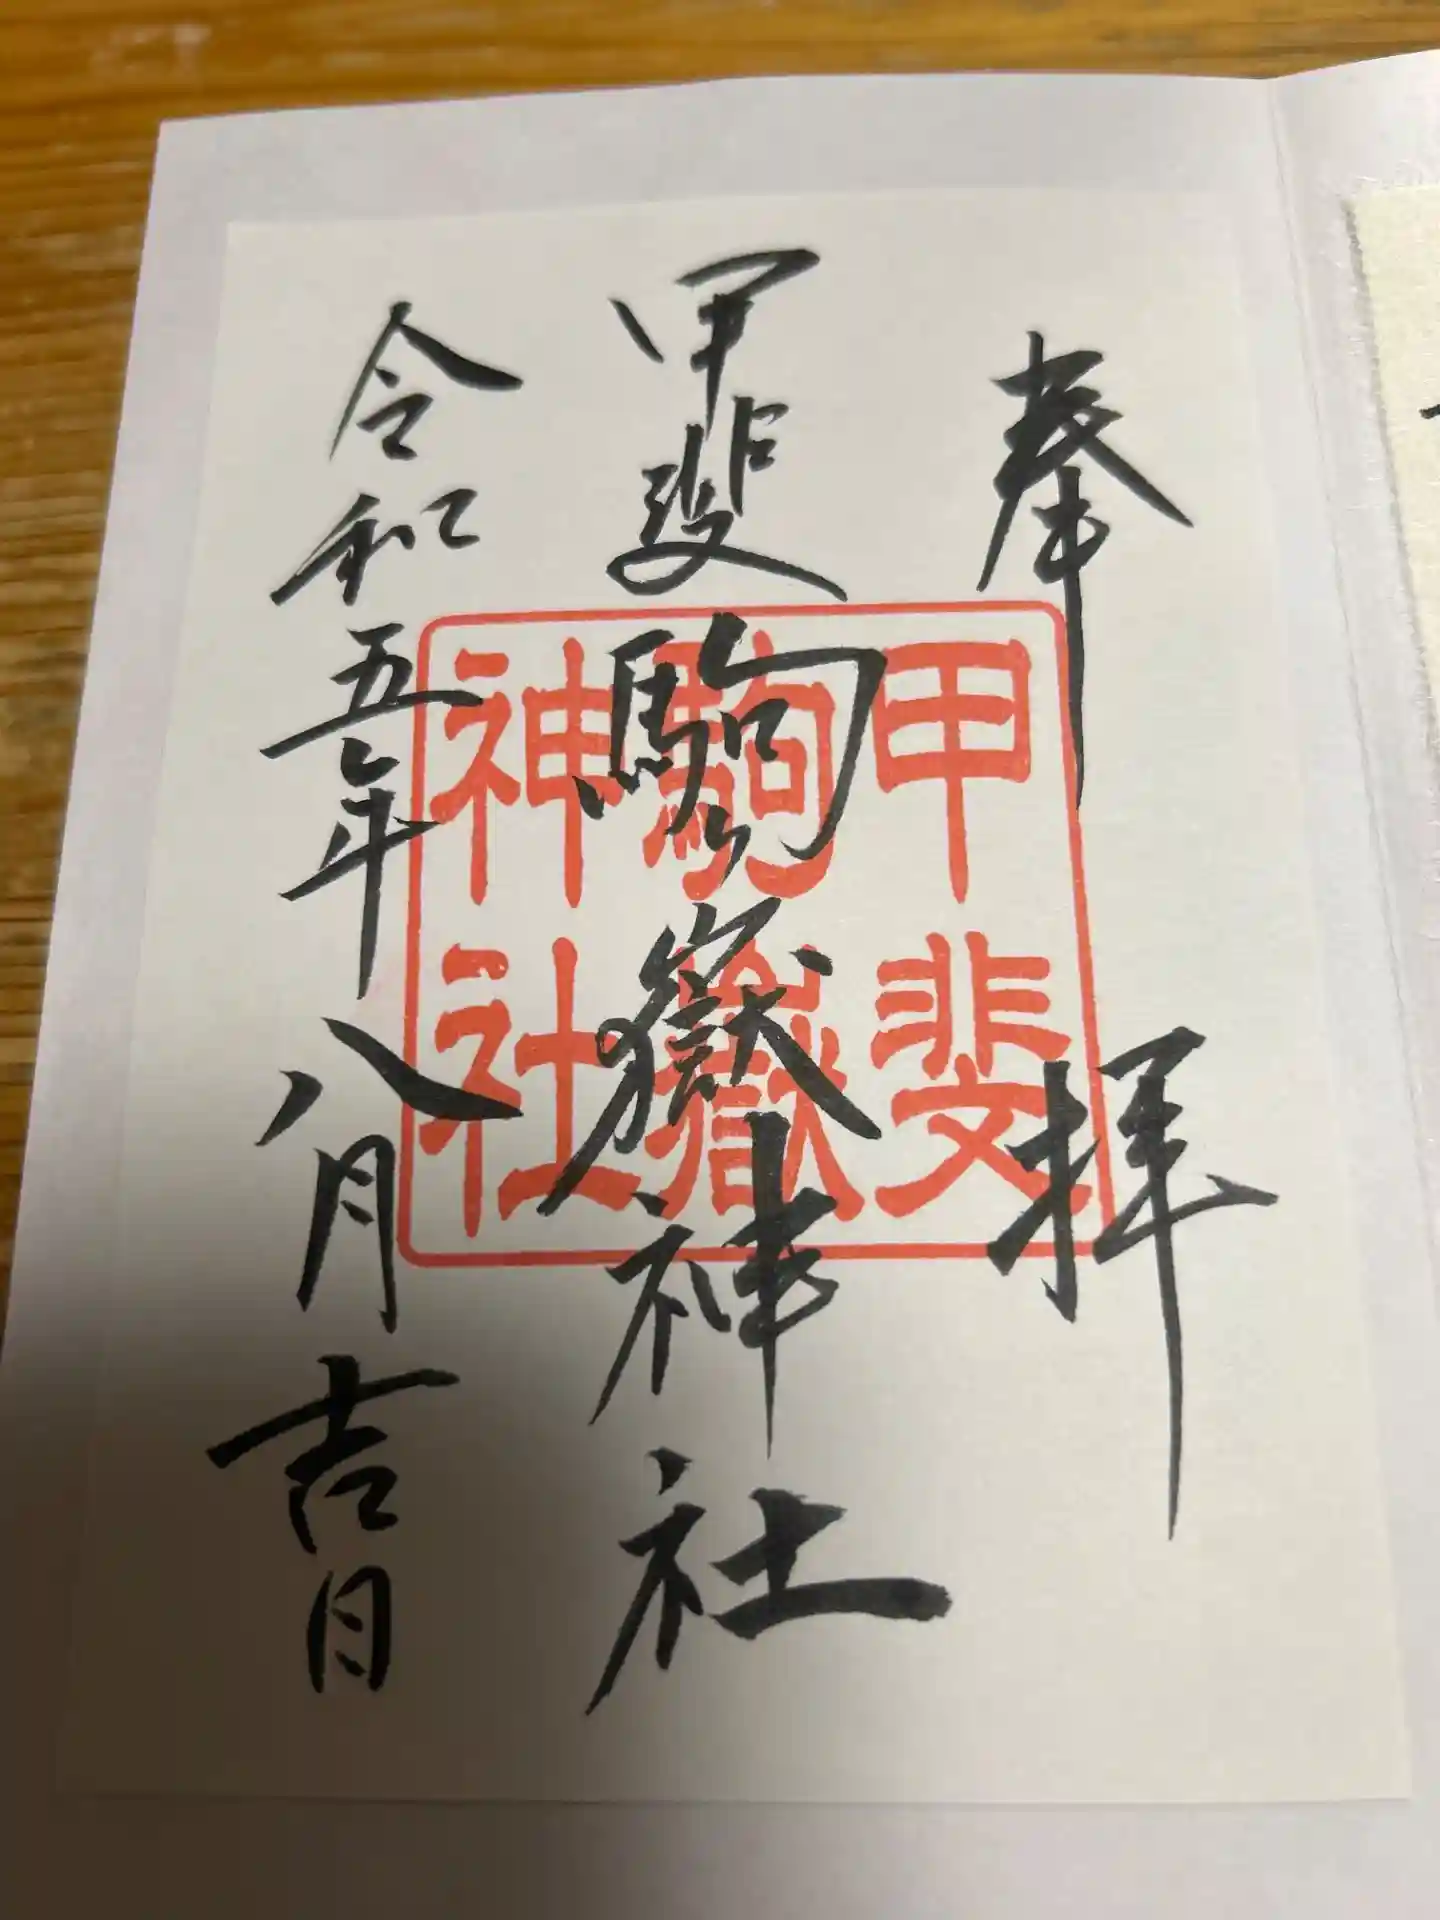 奉拝
甲斐駒嶽神社
令和五年八月吉日
甲斐
駒嶽
神社